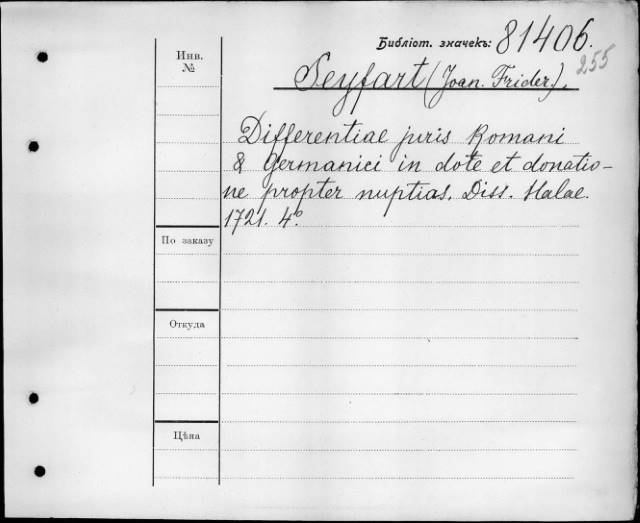 Библіот. значекъ: 81406.
255
Инв.
№
Seyfart (Joan. Frider.).
Differentiae juris Romani
& Germanici in dote et donatio-
ne propter nuptias. Diss. Halae.
1721. 4º.
По заказу
Откуда
Цѣна